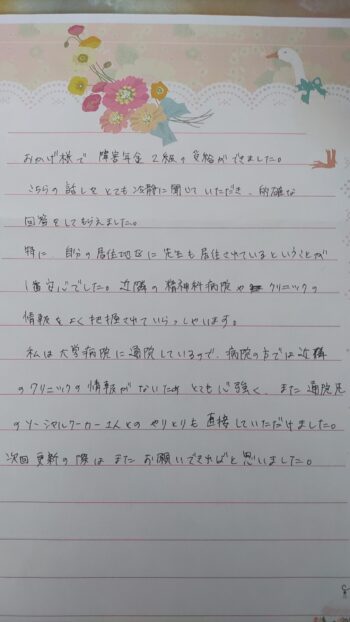 おかげ様で 障害年金 2級の受給ができました。
こちらの話しをとても冷静に聞いていただき、的確な
回答をしてもらえました。
特に、自分の居住地区に先生も居住されているということが
1番安心でした。近隣の精神科病院や クリニックの
情報をよく把握されていらっしゃいます。
私は大学病院に通院しているので、病院の方では近隣
のクリニックの情報がないため とても心強く、また通院先
のソーシャルワーカーさんとのやりとりも直接していただけました。
次回更新の際は また お願いできればと思いました。